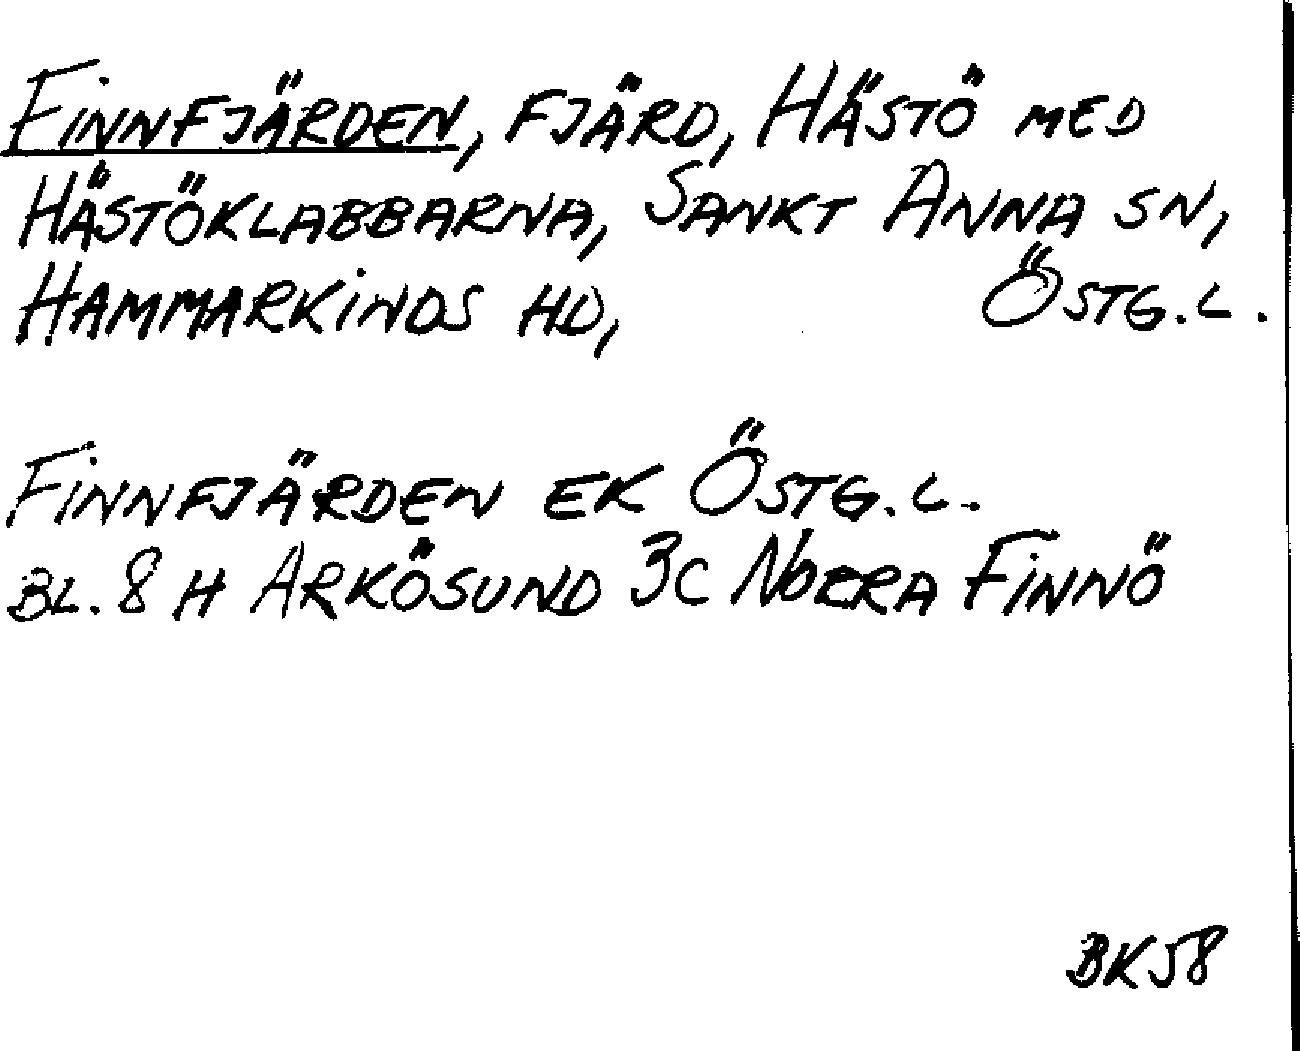 FINNFJÄRDEN, FJÄRD, HÄSTÖ MED
HÄSTÖKLABBARNA, SANKT ANNA SN,
HAMMARKINDS HD, ÖSTG.L.
FINNFJÄRDEN EK ÖSTG.L.
BL. 8 H ARKÖSUND 3C NORRA FINNÖ
BK58